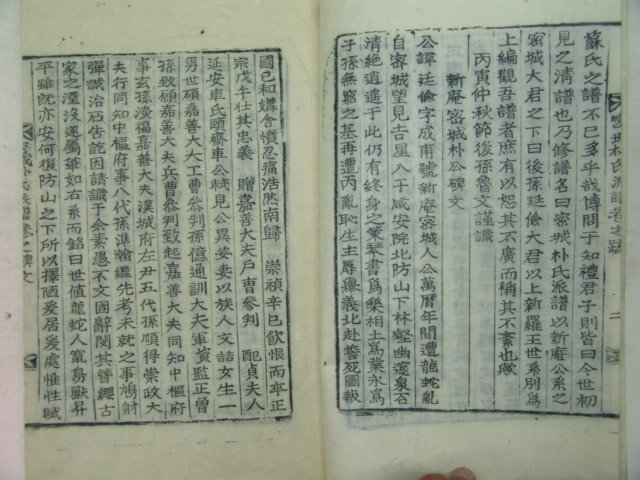 蘇氏之譜不已多乎哉博問于知禮君子則皆曰今世初
見之淸譜也乃修譜名曰密城朴氏派譜以新庵公系之
密城大君之下曰後孫廷儉大君以上新羅王世系別爲
上編觀吾譜者庶有以恕其不廣而稱其不紊也歟
丙寅仲秋節後孫魯文謹識
新庵密城朴公碑文
公諱廷儉字成甫號新庵密城人公萬曆年間遭龍蛇亂
自密城望見吉星入于咸安院北防山下林壑幽邃泉石
清絶逍遙于此仍有終身之策琴書爲樂相土爲業永爲
子孫無窮之基再遭丙亂恥生主辱擧義北赴誓死圖報
國已和媾含憤忍痛浩然南歸 崇禎辛巳飮恨而卒正
宗戊午壯其忠義 贈嘉善大夫戶曹參判 配貞夫人
延安車氏頭齋車公軾見公異妻以族人文喆女生一
男世碩嘉善大夫工曹參判孫億通訓大夫軍資監正曾
孫致願嘉善大夫兵曹參判致起嘉善大夫同知中樞府
事玄孫浚福嘉善大夫漢城府左尹五代孫順得崇政大
夫行同知中樞府事八代孫準翰繼先考未就之事鳩財
彈誠治石告訖因請識于余素愚不文固辭閔其簪纓古
家之湮沒遂屬華如右系而銘曰世値龍蛇人竄鳥獸昇
平雖訖亦安何復防山之下所以擇陋爰居爰處惟性賦